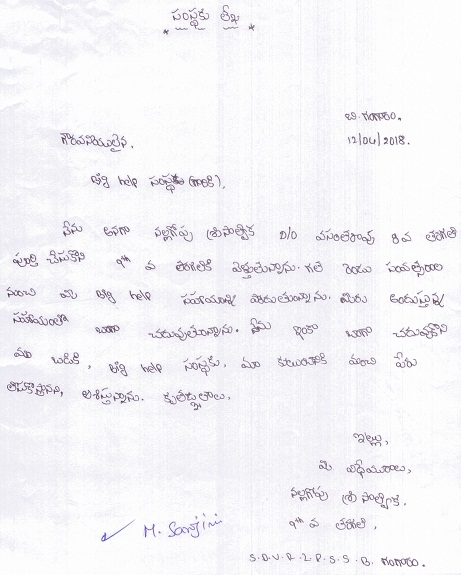 సంస్థకు లేఖ
బి. గంగారం.
12/04/2018.
గౌరవనీయులైన,
బిగ్ help సంస్థకు (గారికి),
నేను అనగా నల్లగోపు శ్రీసాత్విక D/O వసంతరావు 8వ తరగతి
పూర్తి చేసుకొని 9th వ తరగతికి వెళ్తున్నాను. గత రెండు సంవత్సరాల
నుంచి మీ బిగ్ help సహాయాన్ని పొందుతున్నాను. మీరు అందిస్తున్న
సహాయంతో బాగా చదువుతున్నాను. నేను ఇంకా బాగా చదువుకొని
మా బడికి, బిగ్ help సంస్థకు, మా కుటుంబానికి మంచి పేరు
తీసుకొస్తానని, ఆశిస్తున్నాను. కృతజ్ఞతలు.
ఇట్లు,
మీ విధేయురాలు,
నల్లగోపు శ్రీ సాత్విక.
9th వ తరగతి.
M. Sanjini
S.D.V.R.Z.P.S.S. B. గంగారం.